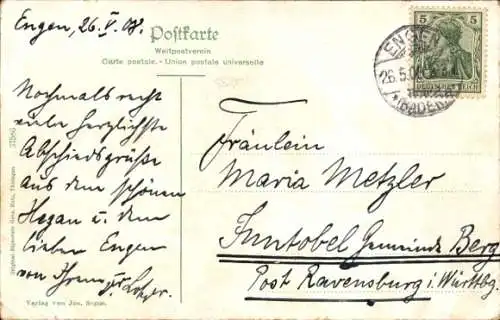 Engen, 26. V. 08.
Postkarte
Weltpostverein
Carte postale. - Union postale universelle
5 5
DEUTSCHES REICH
ENGEN
26.5.08
(BADEN)
Nochmals recht
viele herzlichste
Abschiedsgrüße
aus dem schönen
Hegau u. dem
lieben Engen
von Ihrem
Fräulein
Maria Metzler
Inntobel Gemeinde Berg
Post Ravensburg i/Württbg.
Verlag von Jos.